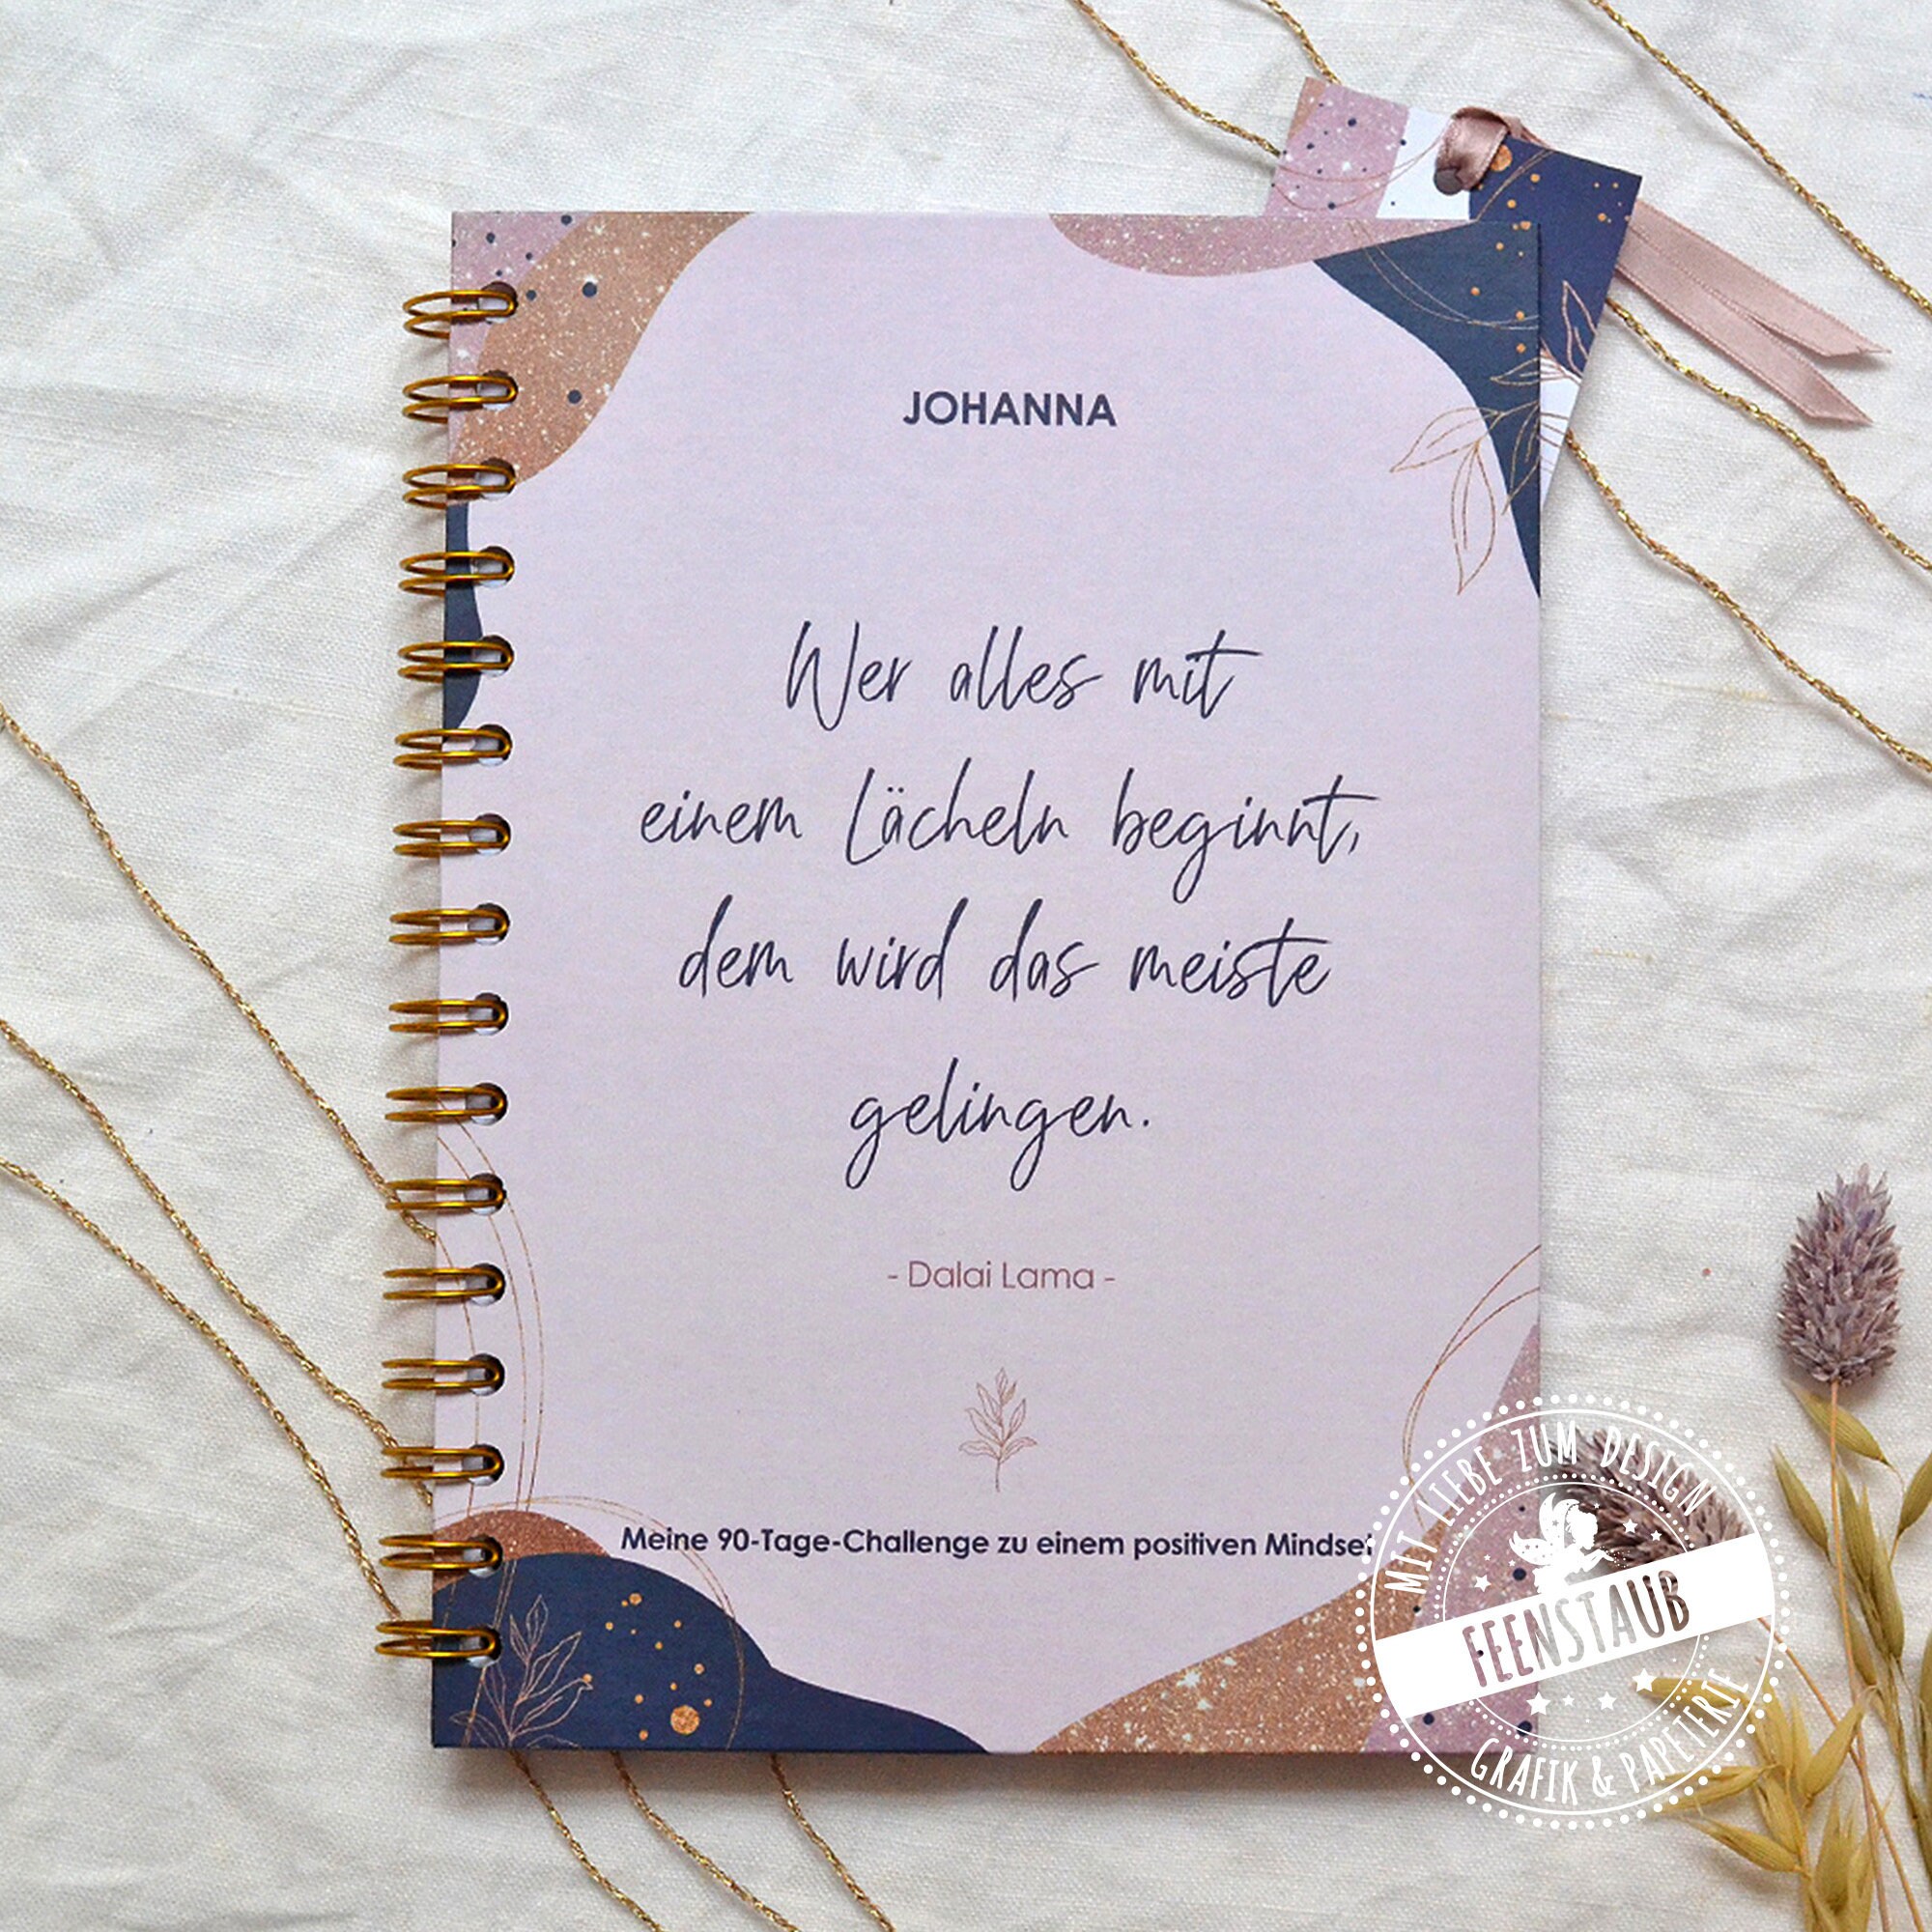 JOHANNA
Wer alles mit
einem Lächeln beginnt,
dem wird das meiste
gelingen.
- Dalai Lama -
Meine 90-Tage-Challenge zu einem positiven Mindset
MIT LIEBE ZUM DESIGN
FEENSTAUB
GRAFIK & PAPETERIE